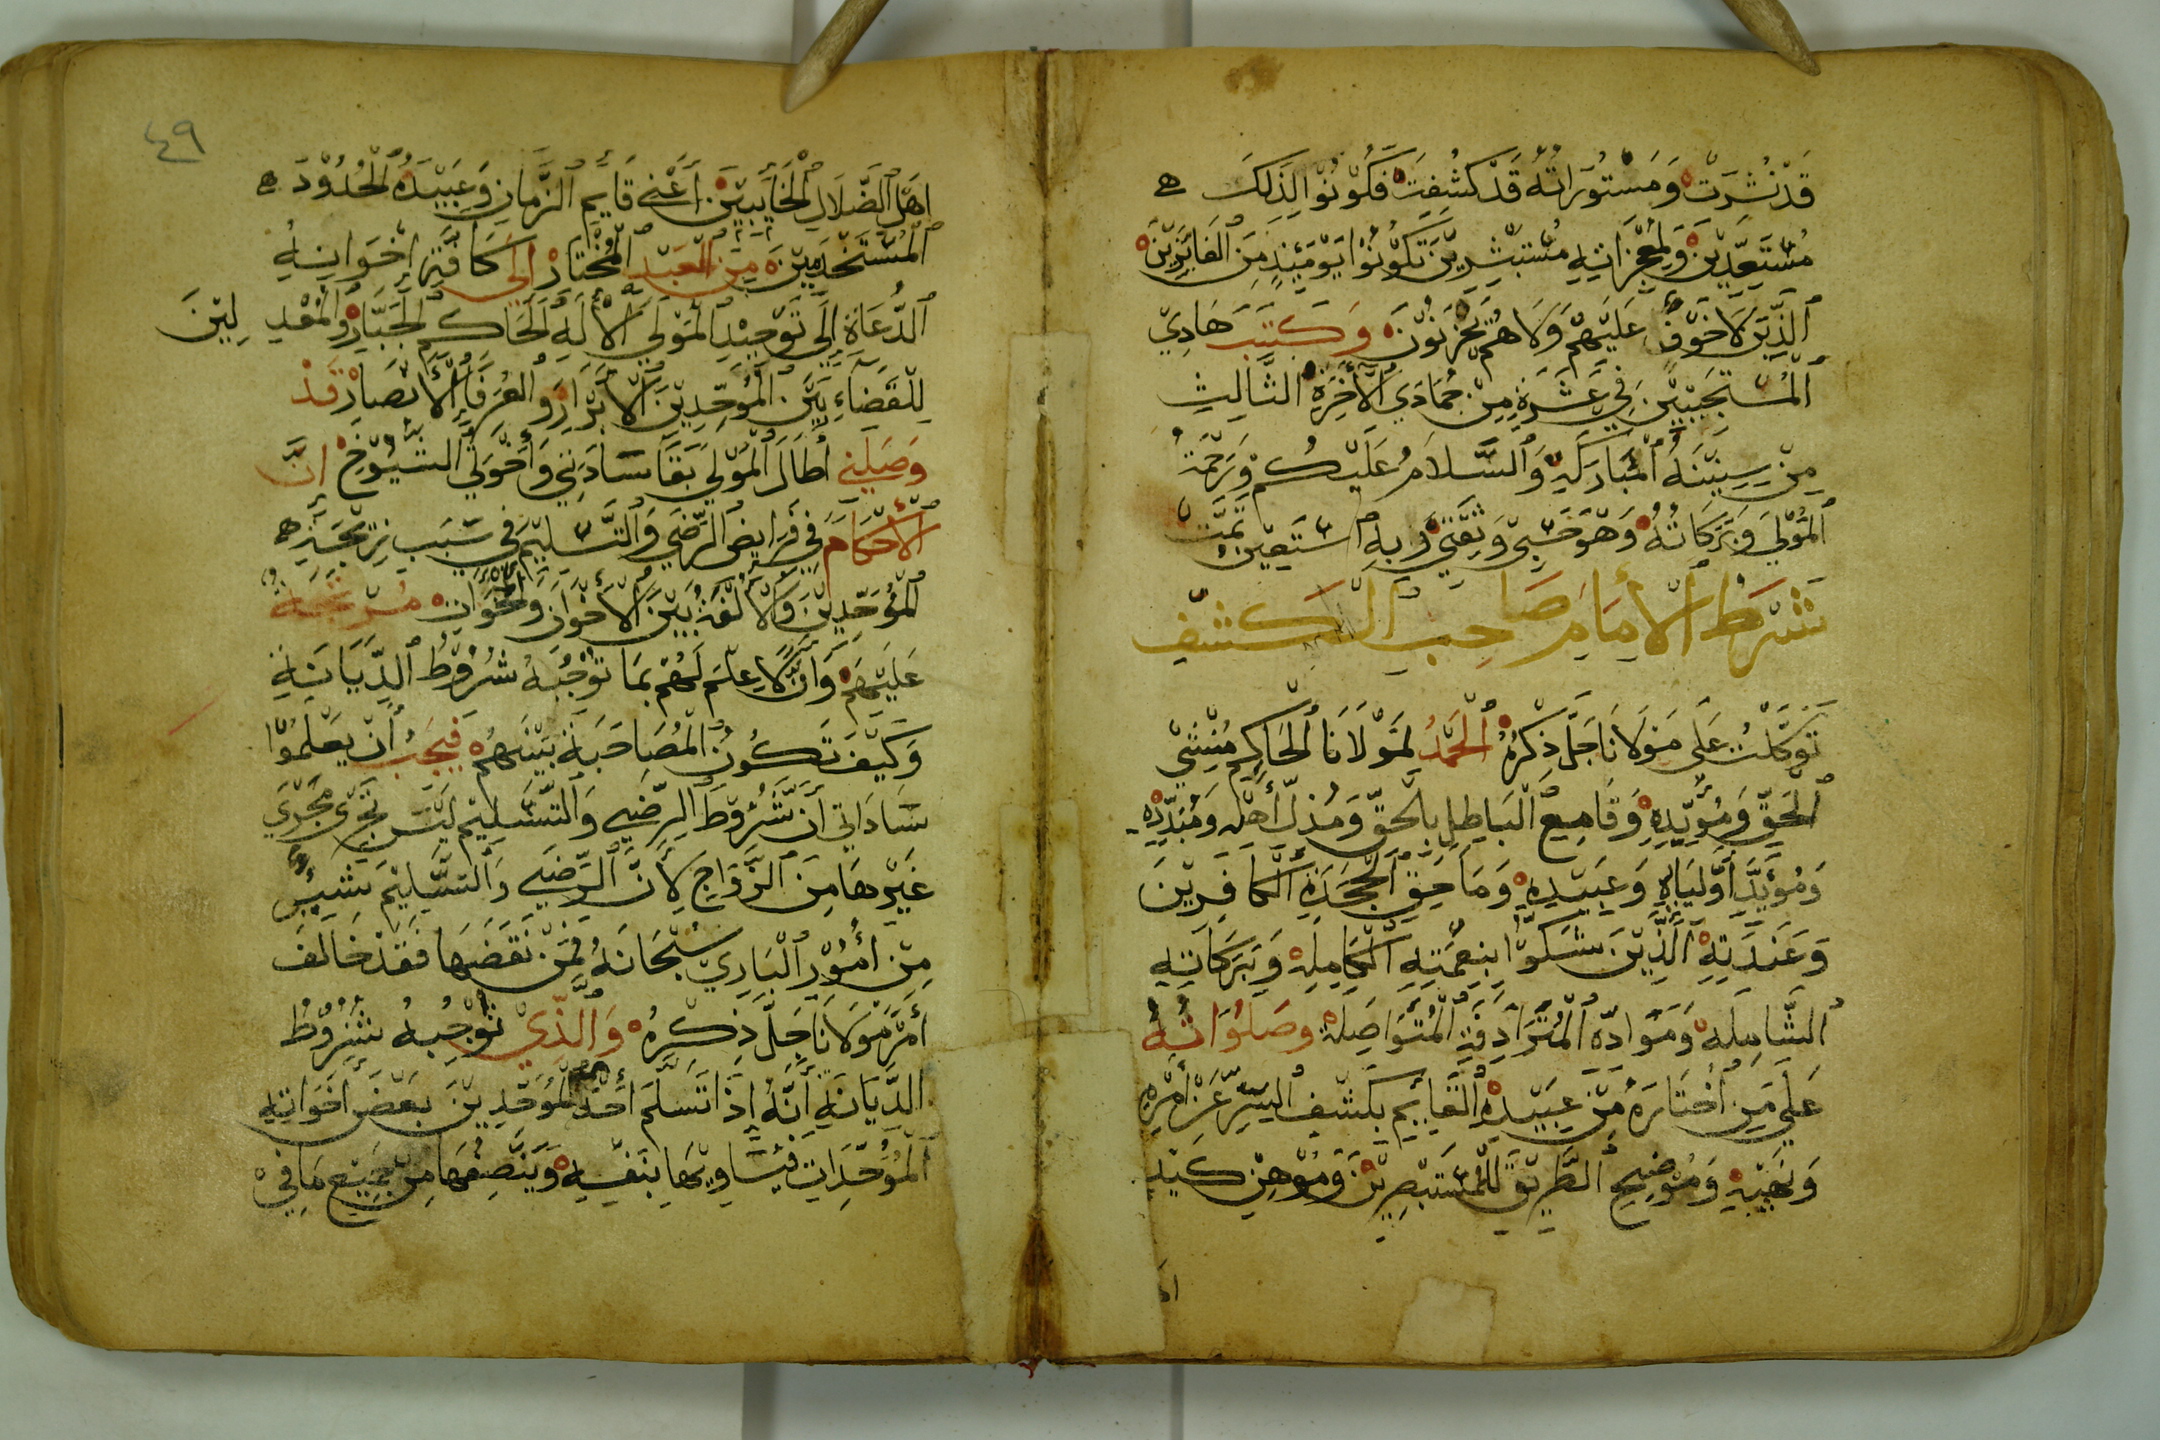 قَدْ نُشِرَتْ وَمَسْتُورَاتُهُ قَدْ كُشِفَتْ فَكُوْنُوْا لِذَلِكَ
مُسْتَعِدِّيْنَ وَلِمُعْجِزَاتِهِ مُسْتَبْشِرِيْنَ تَكُوْنُوْا يَوْمَئِذٍ مِنَ الفَايِزِيْنَ
الَّذِيْنَ لَا خَوْفٌ عَلَيْهِمْ وَلَا هُمْ يَحْزَنُوْنَ وَكَتَبَ هَادِيْ
الْمُسْتَجِيْبِيْنَ فِي عَشَرَةٍ مِنْ جُمَادَى الْآخِرَةِ الثَّالِثِ
مِنْ سِنِيْنَهُ الْمُبَارَكَةِ وَالسَّلَامُ عَلَيْكُمْ وَرَحْمَةُ
الْمَوْلَى وَبَرَكَاتُهُ وَهُوَ حَسْبِي وَثِقَتِي وَبِهِ اسْتَعِيْنُ تَمَّتْ
شَرْطُ الْأِمَامِ صَاحِبِ الْكَشْفِ
تَوَكَّلْتُ عَلَى مَوْلَانَا جَلَّ ذِكْرُهُ الْحَمْدُ لِمَوْلَانَا الْحَاكِمِ مُنْشِئِ
الْحَقِّ وَمُؤَيِّدِهِ وَقَامِعِ الْبَاطِلِ بِالْحَقِّ وَمُذِلِّ أَهْلِهِ وَمُبَدِّدِهِ
وَمُؤَيِّدِ أَوْلِيَايِهِ وَعَبِيْدِهِ وَمَاحِقِ الْجَحَدَةِ الْكَافِرِيْنَ
وَعَنَدَتِهِ الَّذِيْنَ شَكُّوْا بِنِعْمَتِهِ الْكَامِلَهِ وَبَرَكَاتِهِ
الشَّامِلَهِ وَمَوَادِّهِ الْمُتَرَادِفَةِ الْمُتَوَاصِلَةِ وَصَلَوَاتُهُ
عَلَى مَنِ اخْتَارَهُ مِنْ عَبِيْدِهِ الْقَايِمِ بِكَشْفِ السِّرِّ عَنْ أَمْرِهِ
وَنَجِيْبِهِ وَمُوْضِحِ الطَّرِيْقِ لِلْمُسْتَبْصِرِيْنَ وَمُوْهِنِ كَيْدِ
٤٩
اهْلِ الضَّلَالِ الْخَايِبِيْنَ أَعْنِي قَايِمَ الزَّمَانِ وَعَبِيْدَهُ الْحُدُوْدَ
الْمُسْتَخْدَمِيْنَ مِنَ الْعَبْدِ الْمُخْتَارْ الَى كَافَّةِ إِخْوَانِهِ
الدُّعَاةِ إِلَى تَوْحِيْدِ الْمَوْلَى الْأِلَهِ الْحَاكِمِ الْجَبَّارْ وَالْمُعْدِلِيْنَ
لِلْقَضَاءِ بَيْنَ الْمُوَحِّدِيْنَ الْأَبْرَارْ وَالْعُرَفَاءِ الْأَنْصَارْ قَدْ
وَصَلَنِي أَطَالَ الْمَوْلَى بَقَا سَادَتِي وَأَخْوَتِي الشُّيُوْخِ انَّ
الْأَحْكَامَ فِي فَرَايِضِ الرِّضَى وَالتَّسْلِيْمِ فِي سَبَبِ
الْمُوَحِّدِيْنَ وَالْأُلْفَةِ بَيْنَ الْأَخْوَانِ وَالْخَوَاتِ
عَلَيْهِمْ وَأَنْ لَا عِلْمَ لَهُمْ بِمَا تُوْجِبُهُ شُرُوْطُ الدِّيَانَةِ
وَكَيْفَ تَكُوْنُ الْمُصَاحَبَةِ بَيْنَهُمْ فَيَجِبُ أَنْ يَعْلَمُوْا
سَادَاتِي أَنَّ شُرُوْطَ الرِّضَى وَالتَّسْلِيْمِ لَيْسَ تَجْرِي مَجْرَى
غَيْرِهَا مِنَ الزَّوَاجِ لِأَنَّ الرِّضَى وَالتَّسْلِيْمَ شَيْءٌ
مِنْ أُمُوْرِ الْبَارِي سُبْحَانَهُ فَمَنْ نَقَضَهَا فَقَدْ خَالَفَ
أَمْرَ مَوْلَانَا جَلَّ ذِكْرُهُ وَالَّذِي تُوْجِبُهُ شُرُوْطُ
الدِّيَانَةِ أَنَّهُ إِذَا تَسَلَّمَ أَحَدُ الْمُوَحِّدِيْنَ بَعْضَ أَخَوَاتِهِ
الْمُوَحِّدَاتِ فَيُسَاوِيْهَا بِنَفْسِهِ وَيُنْصِفُهَا مِنْ جَمِيْعِ مَا فِيْ